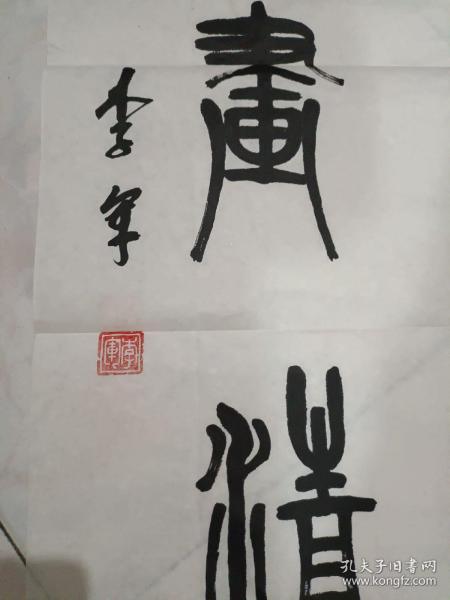 畫情
李军
李軍
孔夫子旧书网
www.kongfz.com